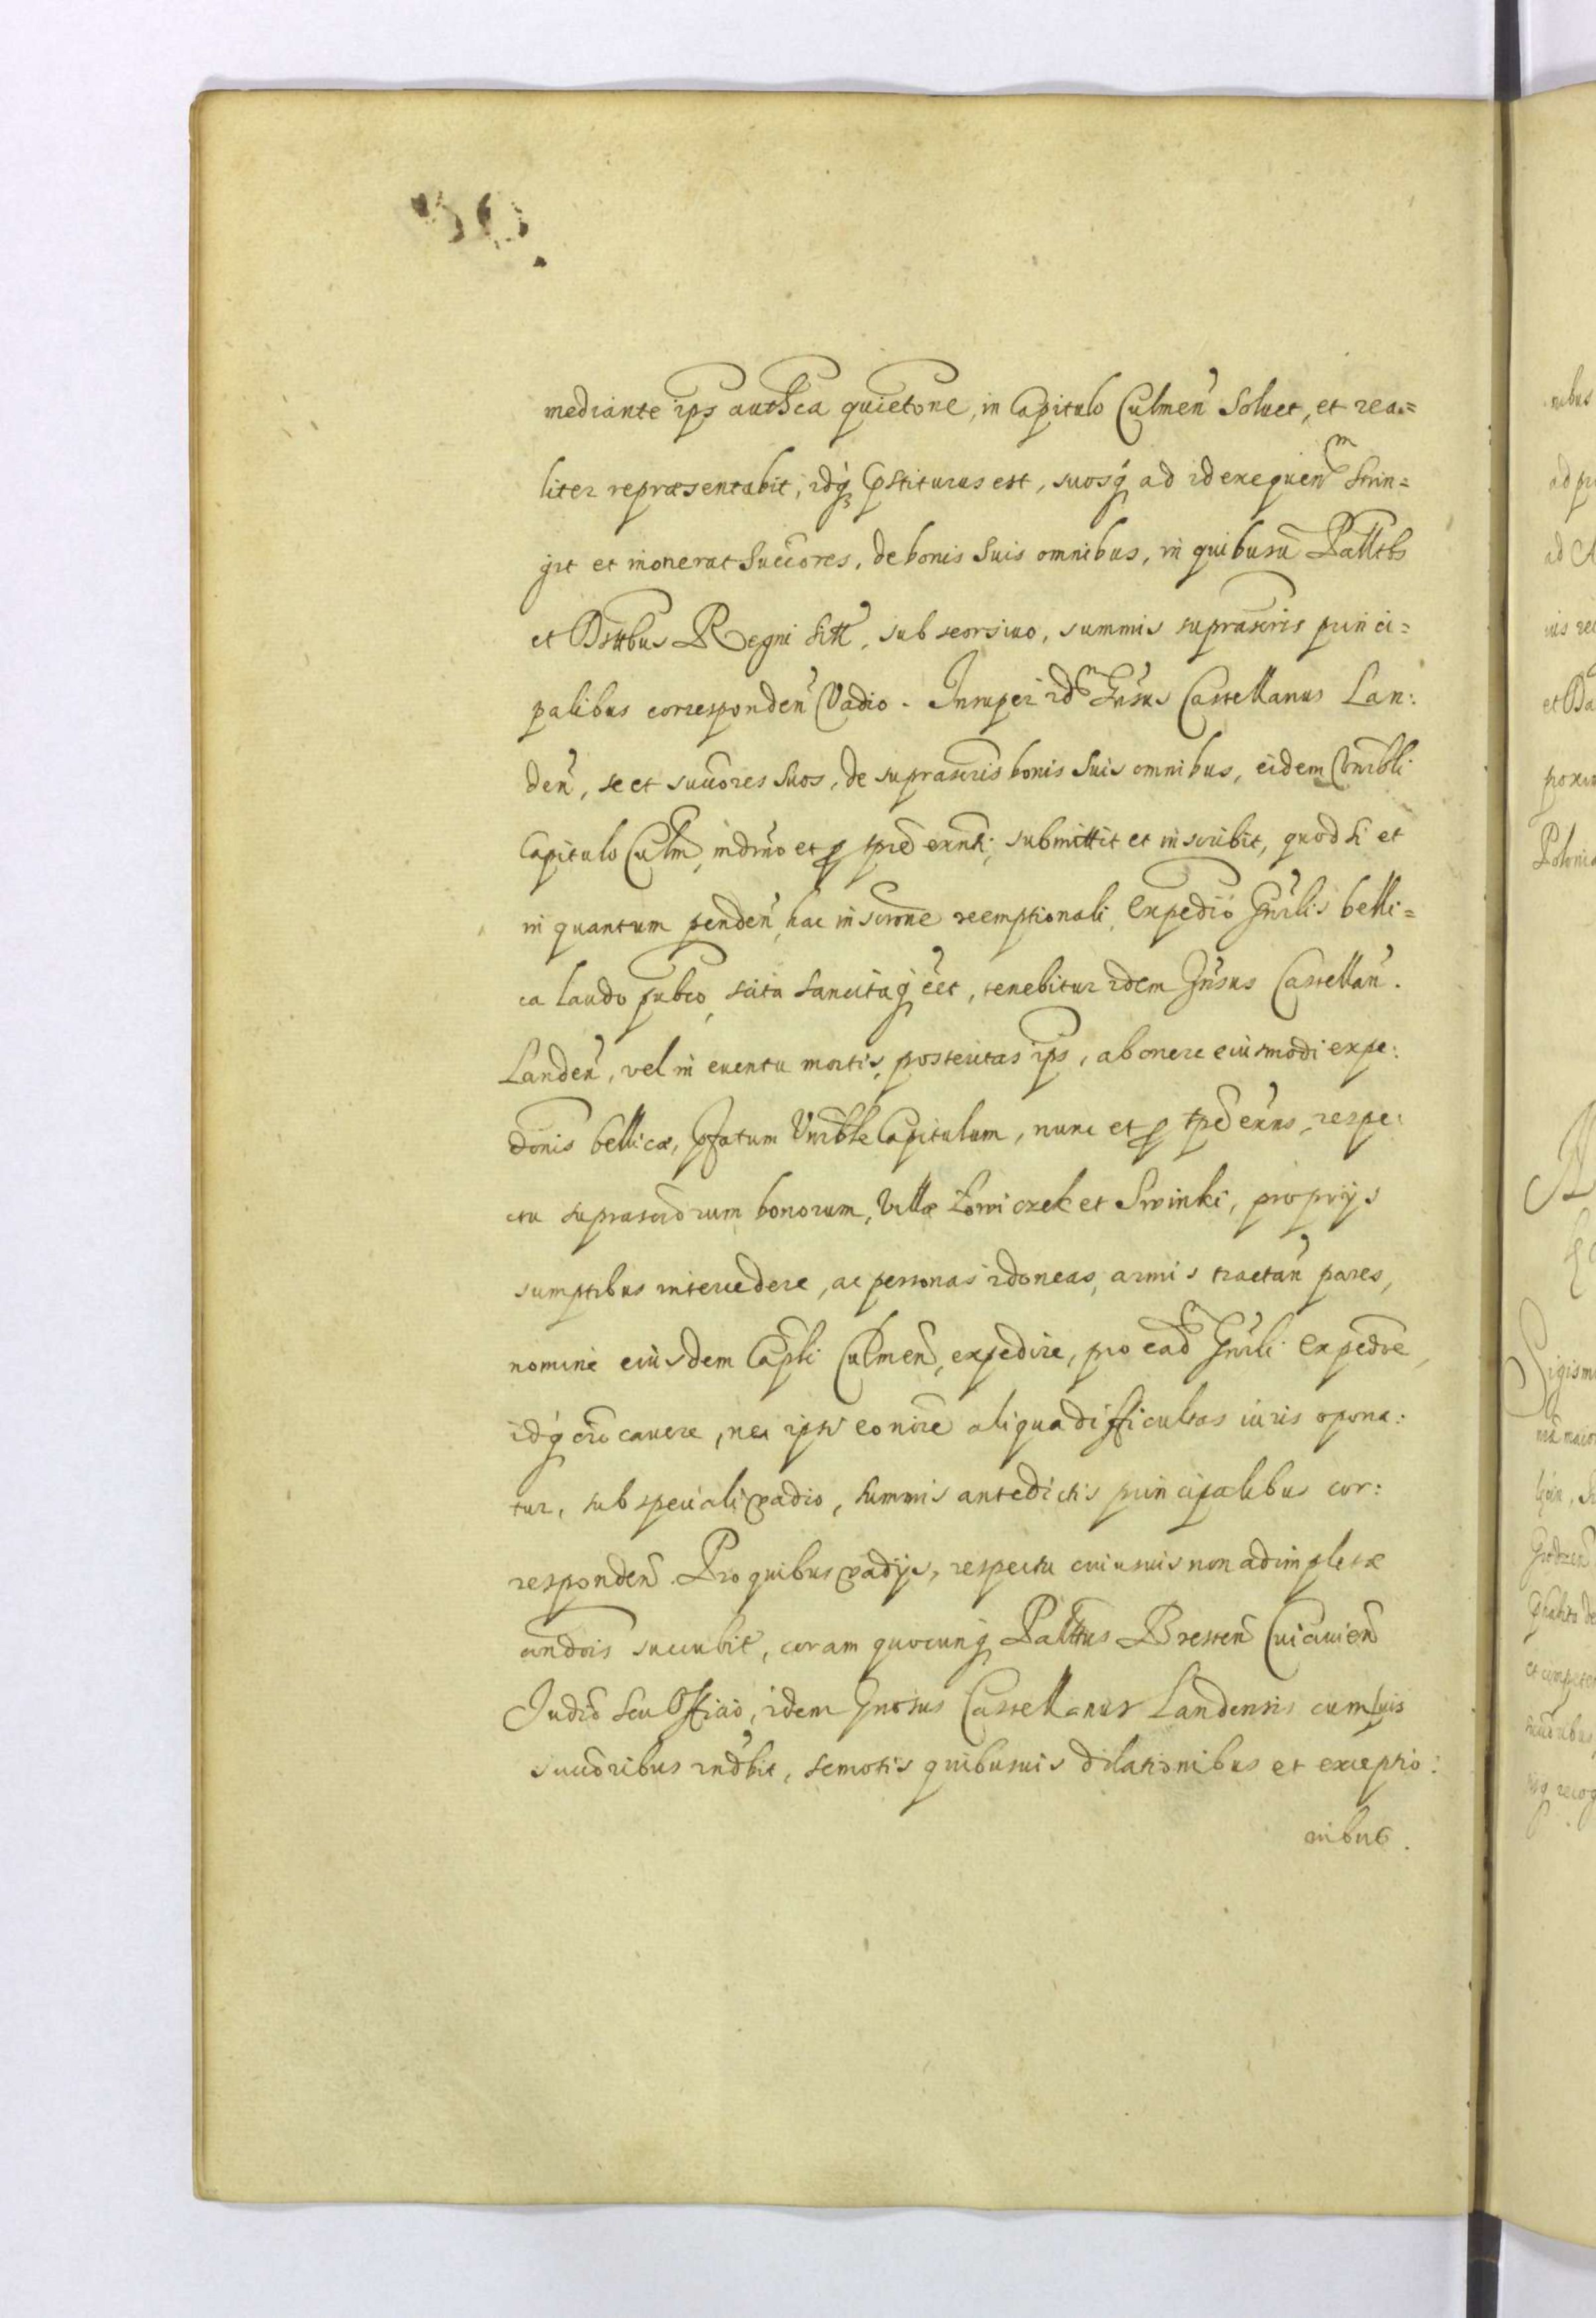 50.
mediante ips authca quietone, in Capitulo Culmeñ Soluet, et rea=
liter repræsentabit, idq̃ Pstiturus est, suosq̃ ad id exequenᵐ strin=
git et inonerat Succores, de bonis suis omnibus, in quibusũ Palltbs
et Dsttbus Regni sitt, sub seorsiuo, summis suprascris princi=
palibus correspondeñ Vadio. Insuper idᵐ Gnsus Castellanus Lan:
deñ, se et succores suos, de suprascris bonis suis omnibus, eidem Vnrbli
Capitulo Culm, indmo et p tpre exnti, submittit et inscribit, quod si et
in quantum pendeñ, hac inscrone reemptionali, Expedio Gnrlis belli=
ca laudo pubco, scita sancitaq̃ eet, tenebitur idem Gnsus Castellañ.
Landeñ, vel in euentu mortis, posteritas ips, ab onere eiusmodi expe:
donis bellicæ, pfatum Vnrble Capitulum, nunc et p tpre exns, respe:
ctu suprascdrum bonorum, Villæ Łowiczek et Swinki, proprijs
sumptibus intercedere, ac personas idoneas, armis tractañ pares,
nomine eiusdem Capli Culmeñ, expedire, pro eadᵐ Gnrli Expedoe,
idq̃ oio cauere, ne ipsi eo noie aliqua difficultas iuris opona:
tur, sub speciali vadio, summis antedictis principalibus cor:
respondeñ. Pro quibus vadijs, respectu cuiusuis non adimpletæ
condois succubit, coram quocunq̃ Palttus Bresteñ Cuiauieñ
Judio seu Officio, idem Gnosus Castellanus Landensis cum suis
succoribus rndbit, semotis quibusuis dilationibus et exceptio:
nibus.